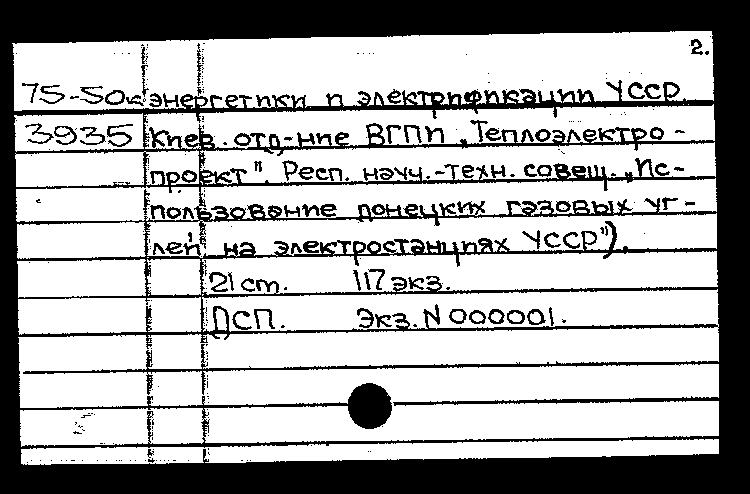 2.
75-50к энергетики и электрификации УССР.
3935 Киев. отд-ние ВГПИ „Теплоэлектро-
проект". Респ. науч.-техн. совещ. „Ис-
пользование донецких газовых уг-
лей на электростанциях УССР").
21 ст. 117 экз.
ДСП. Экз. N 000001.